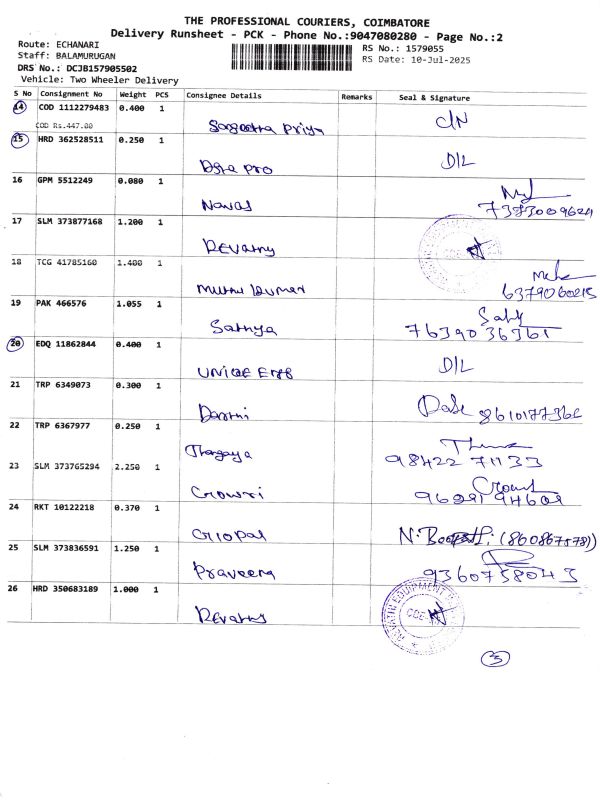 THE PROFESSIONAL COURIERS, COIMBATORE
Delivery Runsheet - PCK - Phone No.:9047080280 - Page No.:2
Route: ECHANARI
Staff: BALAMURUGAN
DRS No.: DCJB157905502
Vehicle: Two Wheeler Delivery
RS No.: 1579055
RS Date: 10-Jul-2025
S No Consignment No Weight PCS Consignee Details Remarks Seal & Signature
14 COD 1112279483 0.400 1
COD Rs.447.00 Priya C/N
15 HRD 362528511 0.250 1
Pro D/L
16 GPM 5512249 0.080 1
Navas 7373009624
17 SLM 373877168 1.200 1
Revathy
18 TCG 41785160 1.400 1
Muthu Kumar 6379060215
19 PAK 466576 1.055 1
Sathya 7639036361
20 EDQ 11862844 0.400 1
UNIQE D/L
21 TRP 6349073 0.300 1
8610177362
22 TRP 6367977 0.250 1
98422 71133
23 SLM 373765294 2.250 1
Gowri
24 RKT 10122218 0.370 1
Gopal (8608675781)
25 SLM 373836591 1.250 1
Praveena 9360758043
26 HRD 350683189 1.000 1
Revathy
3